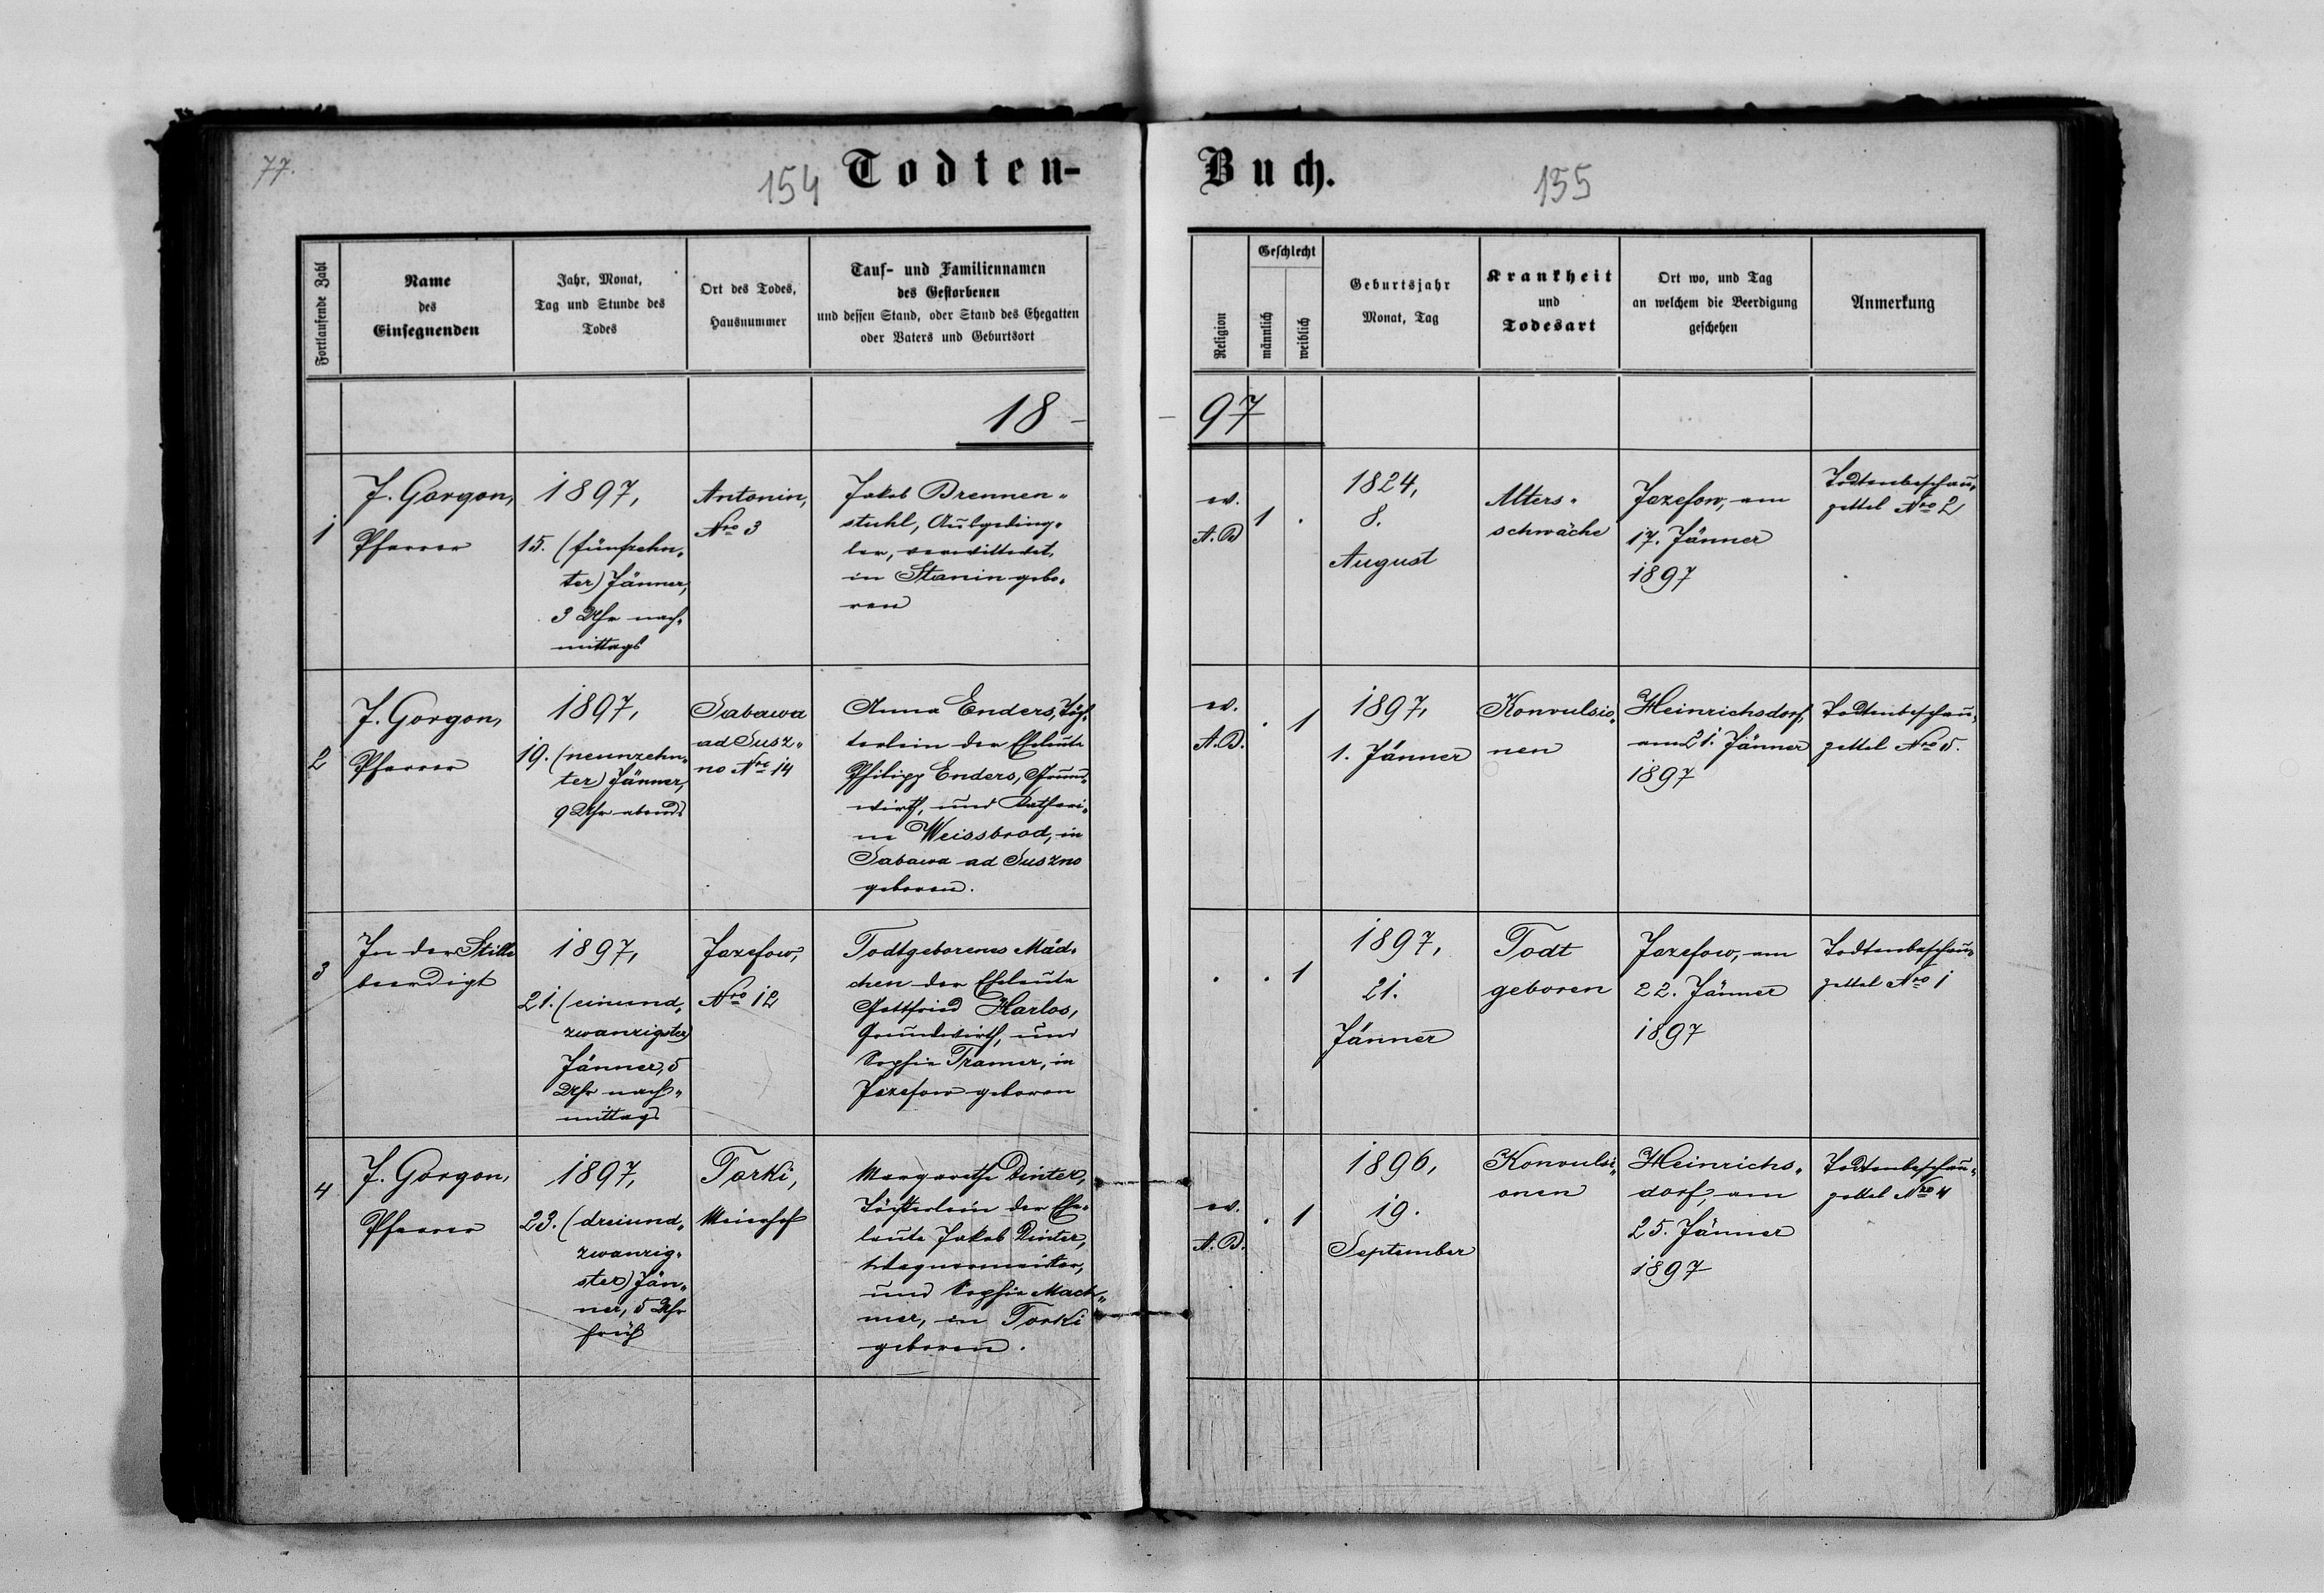 77.
154 Todten-
Buch. 155
Fortlaufende Zahl
Name
des
Einsegnenden
Jahr, Monat,
Tag und Stunde des
Todes
Ort des Todes,
Hausnummer
Tauf- und Familiennamen
des Gestorbenen
und dessen Stand, oder Stand des Ehegatten
oder Vaters und Geburtsort
Religion
Geschlecht
männlich
weiblich
Geburtsjahr
Monat, Tag
Krankheit
und
Todesart
Ort wo, und Tag
an welchem die Beerdigung
geschehen
Anmerkung
18-
-97
1
J. Gorgon,
Pfarrer
1897,
15. (fünfzehn-
ter) Jänner,
3 Uhr nach-
mittags
Antonin,
Nro 3
Jakob Brennen-
stuhl, Ausgeding-
ler, verwittwet,
in Stanin gebo-
ren
ev.
A.B
1
.
1824,
8.
August
Alters-
schwäche
Jozefow, am
17. Jänner
1897
Todtenbeschau-
zettel Nro 2
2
J. Gorgon,
Pfarrer
1897,
19. (neunzehn-
ter) Jänner,
9 Uhr abends
Sabawa
ad Susz-
no Nro 14
Anna Enders, Töch-
terlein der Eheleute
Philipp Enders, Grund-
wirth, und Kathari-
na Weissbrod, in
Sabawa ad Suszno
geboren.
ev.
A.B.
.
1
1897,
1. Jänner
Konvulsio-
nen
Heinrichsdorf,
am 21. Jänner
1897
Todtenbeschau-
zettel Nro 5.
3
In der Stille
beerdigt
1897,
21. (einund-
zwanzigster)
Jänner, 5
Uhr nach-
mittags
Jozefow,
Nro 12
Todtgeborenes Mäd-
chen der Eheleute
Gottfried Harlos,
Grundwirth, und
Sophie Tramer, in
Jozefow geboren
.
.
1
1897,
21.
Jänner
Todt
geboren
Jozefow, am
22. Jänner
1897
Todtenbeschau-
zettel Nro 1
4
J. Gorgon,
Pfarrer
1897,
23. (dreiund-
zwanzig-
ster) Jän-
ner, 5 Uhr
früh
Torki,
Meierhof
Margarethe Dinter,
Töchterlein der Ehe-
leute Jakob Dinter,
Wagnermeister,
und Sophie Mach-
mer, in Torki
geboren.
ev.
A.B.
.
1
1896,
19.
September
Konvulsi-
onen
Heinrichs-
dorf, am
25. Jänner
1897
Todtenbeschau-
zettel Nro 4